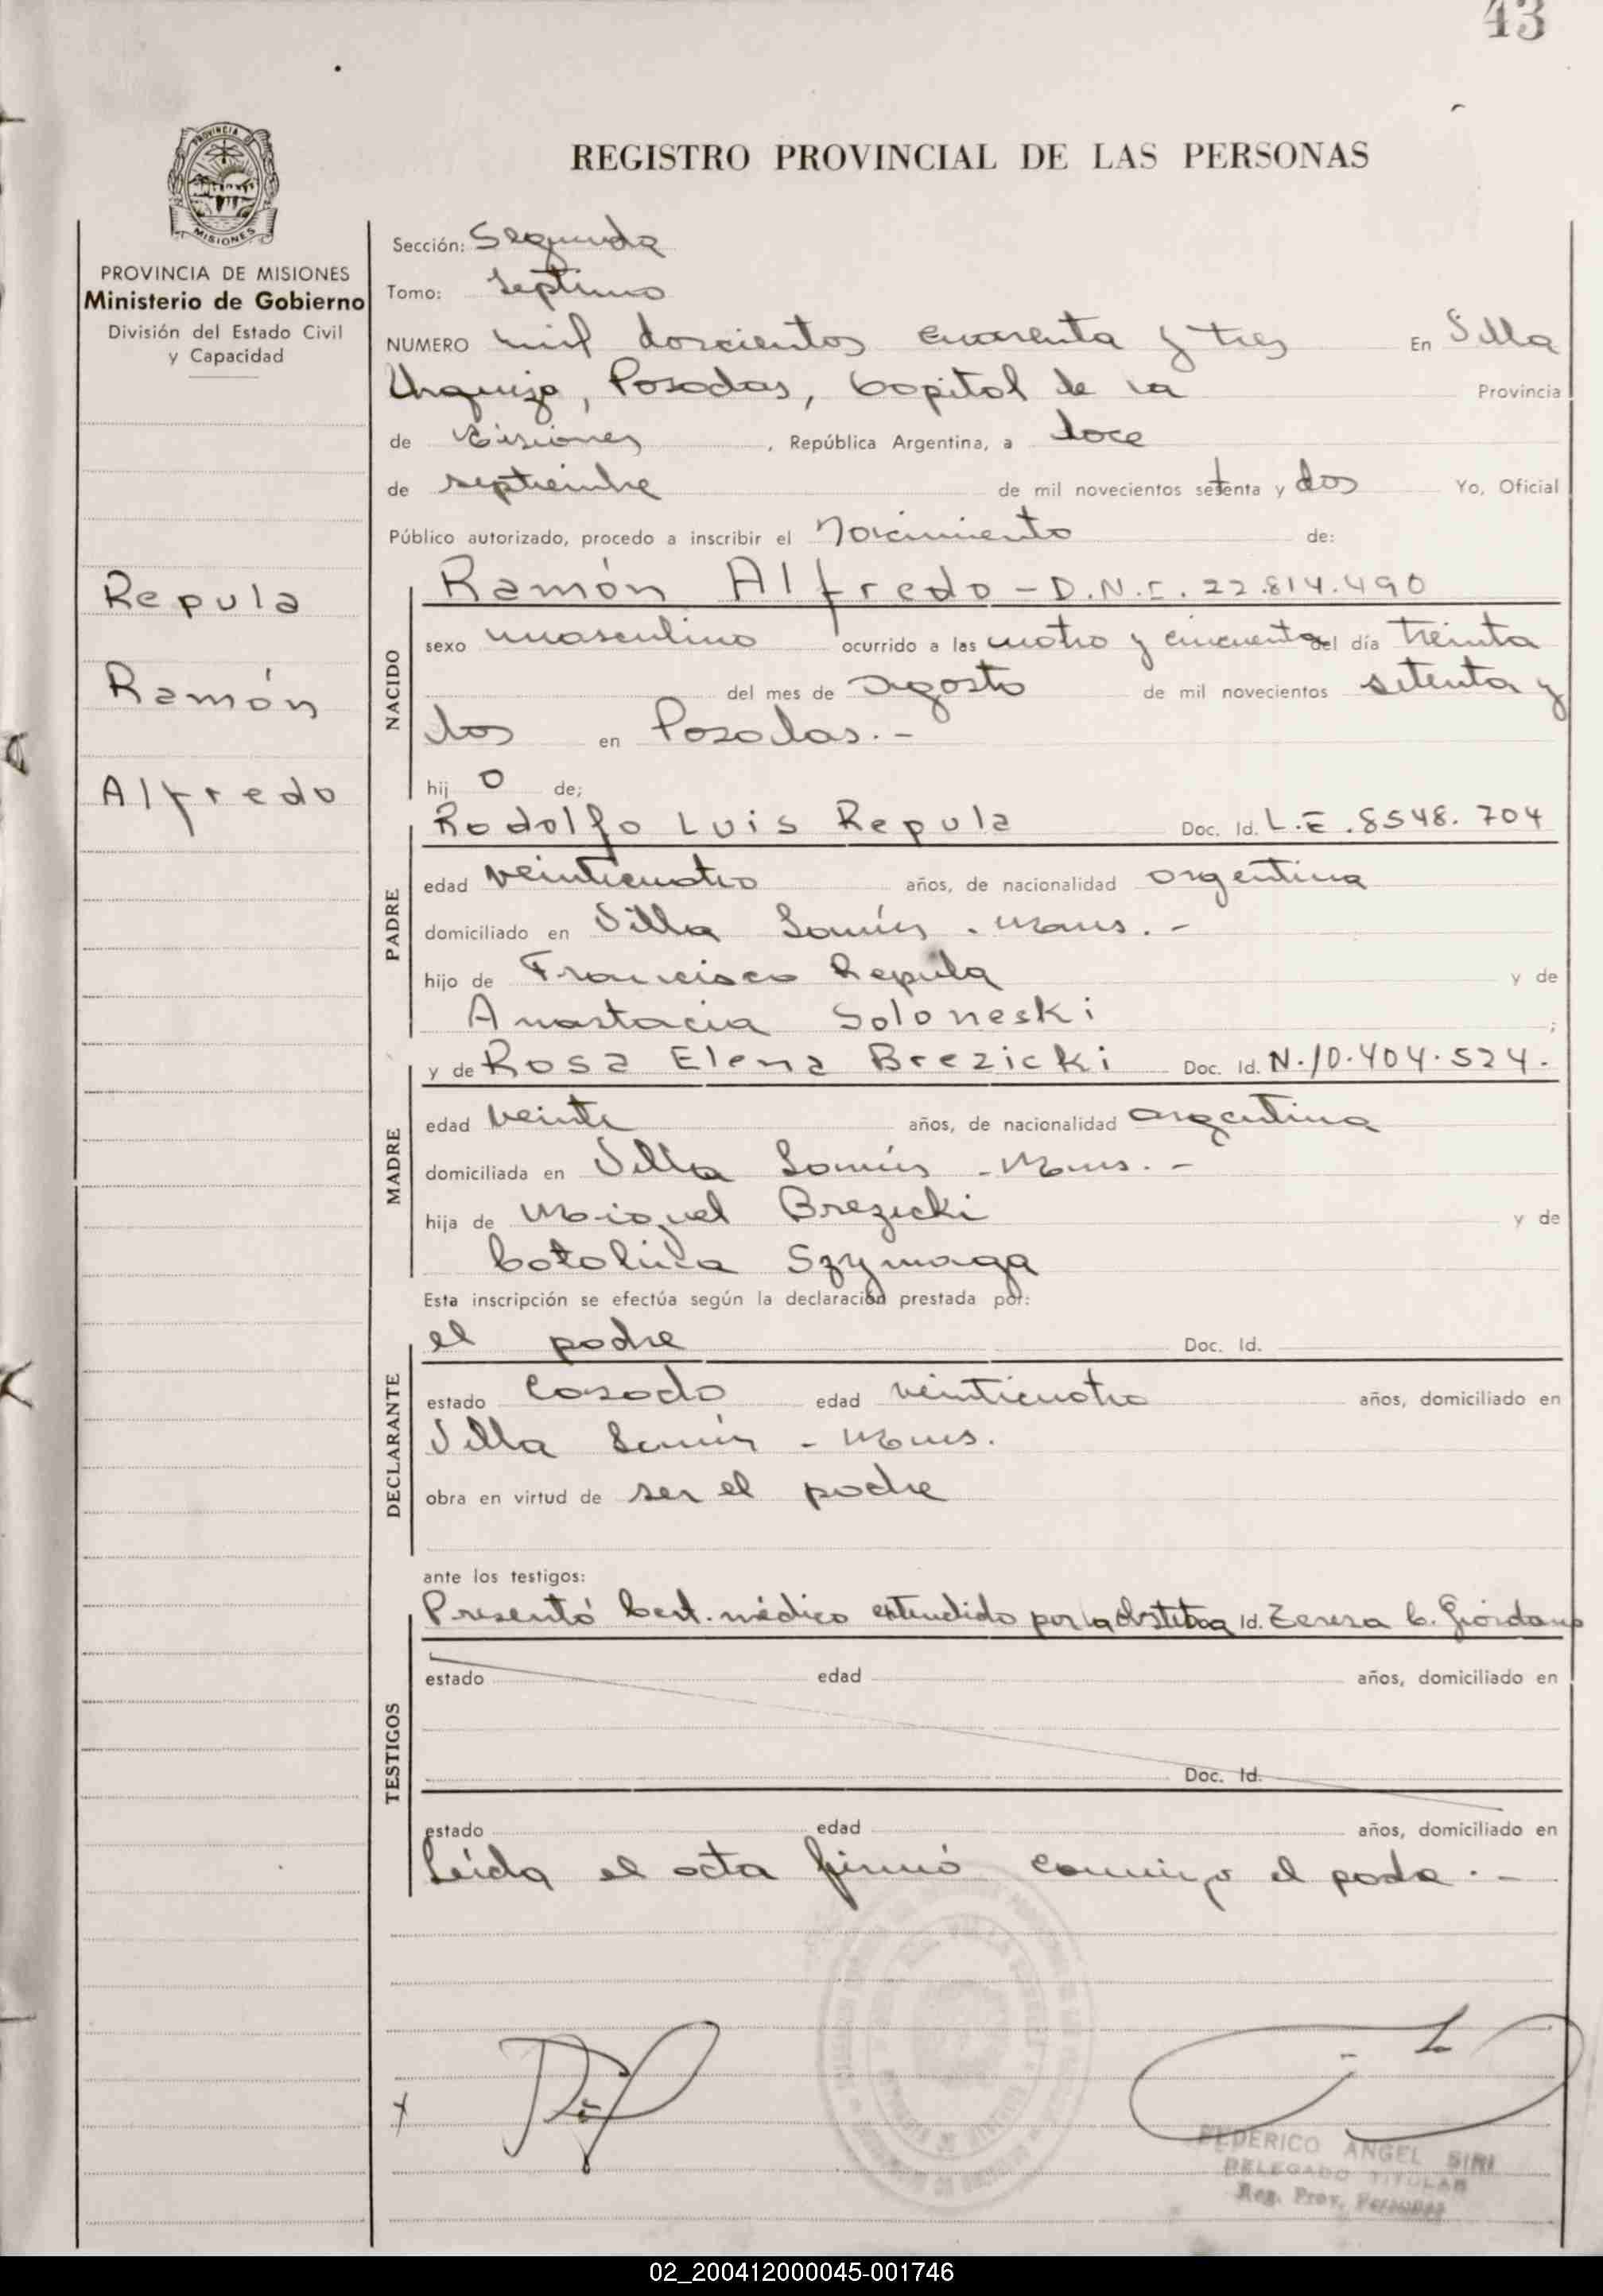 43
REGISTRO PROVINCIAL DE LAS PERSONAS
PROVINCIA DE MISIONES
MISIONES
PROVINCIA DE MISIONES
Ministerio de Gobierno
División del Estado Civil
y Capacidad
Repula
Ramón
Alfredo
Sección: Segunda
Tomo: Septimo
NUMERO mil doscientos cuarenta y tres En Villa
Urquiza, Posadas, Capital de la Provincia
de Misiones, República Argentina, a doce
de septiembre de mil novecientos setenta y dos Yo, Oficial
Público autorizado, procedo a inscribir el Nacimiento de:
NACIDO
Ramón Alfredo - D.N.I. 22.814.490
sexo masculino ocurrido a las cuatro y cincuenta del día treinta
del mes de agosto de mil novecientos setenta y
dos en Posadas. -
hij o de;
PADRE
Rodolfo Luis Repula Doc. Id. L.E. 8548.704
edad veinticuatro años, de nacionalidad argentina
domiciliado en Villa Lanús . Mnes. -
hijo de Francisco Repula y de
Anastacia Soloneski ;
MADRE
y de Rosa Elena Brezicki Doc. Id. N.10.404.524.
edad veinte años, de nacionalidad argentina
domiciliada en Villa Lanús - Mnes. -
hija de Miguel Brezicki y de
Catalina Szymaga
Esta inscripción se efectúa según la declaración prestada por:
DECLARANTE
el padre Doc. Id.
estado Casado edad veinticuatro años, domiciliado en
Villa Lanús - Mnes.
obra en virtud de ser el padre
ante los testigos:
TESTIGOS
Presentó Cert. médico extendido por la obstetra Id. Teresa C. Giordano
estado edad años, domiciliado en
Doc. Id.
estado edad años, domiciliado en
Leída el acta firmó conmigo el padre. -
x
FEDERICO ANGEL SIRI
DELEGADO TITULAR
Reg. Prov. Personas
02_200412000045-001746